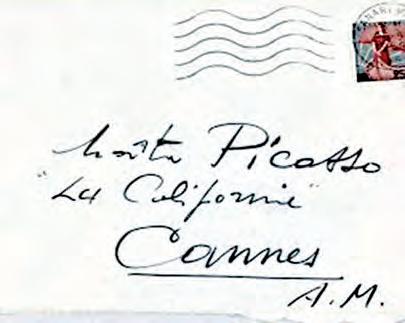 Maître Picasso
"La Californie"
Cannes
A.M.